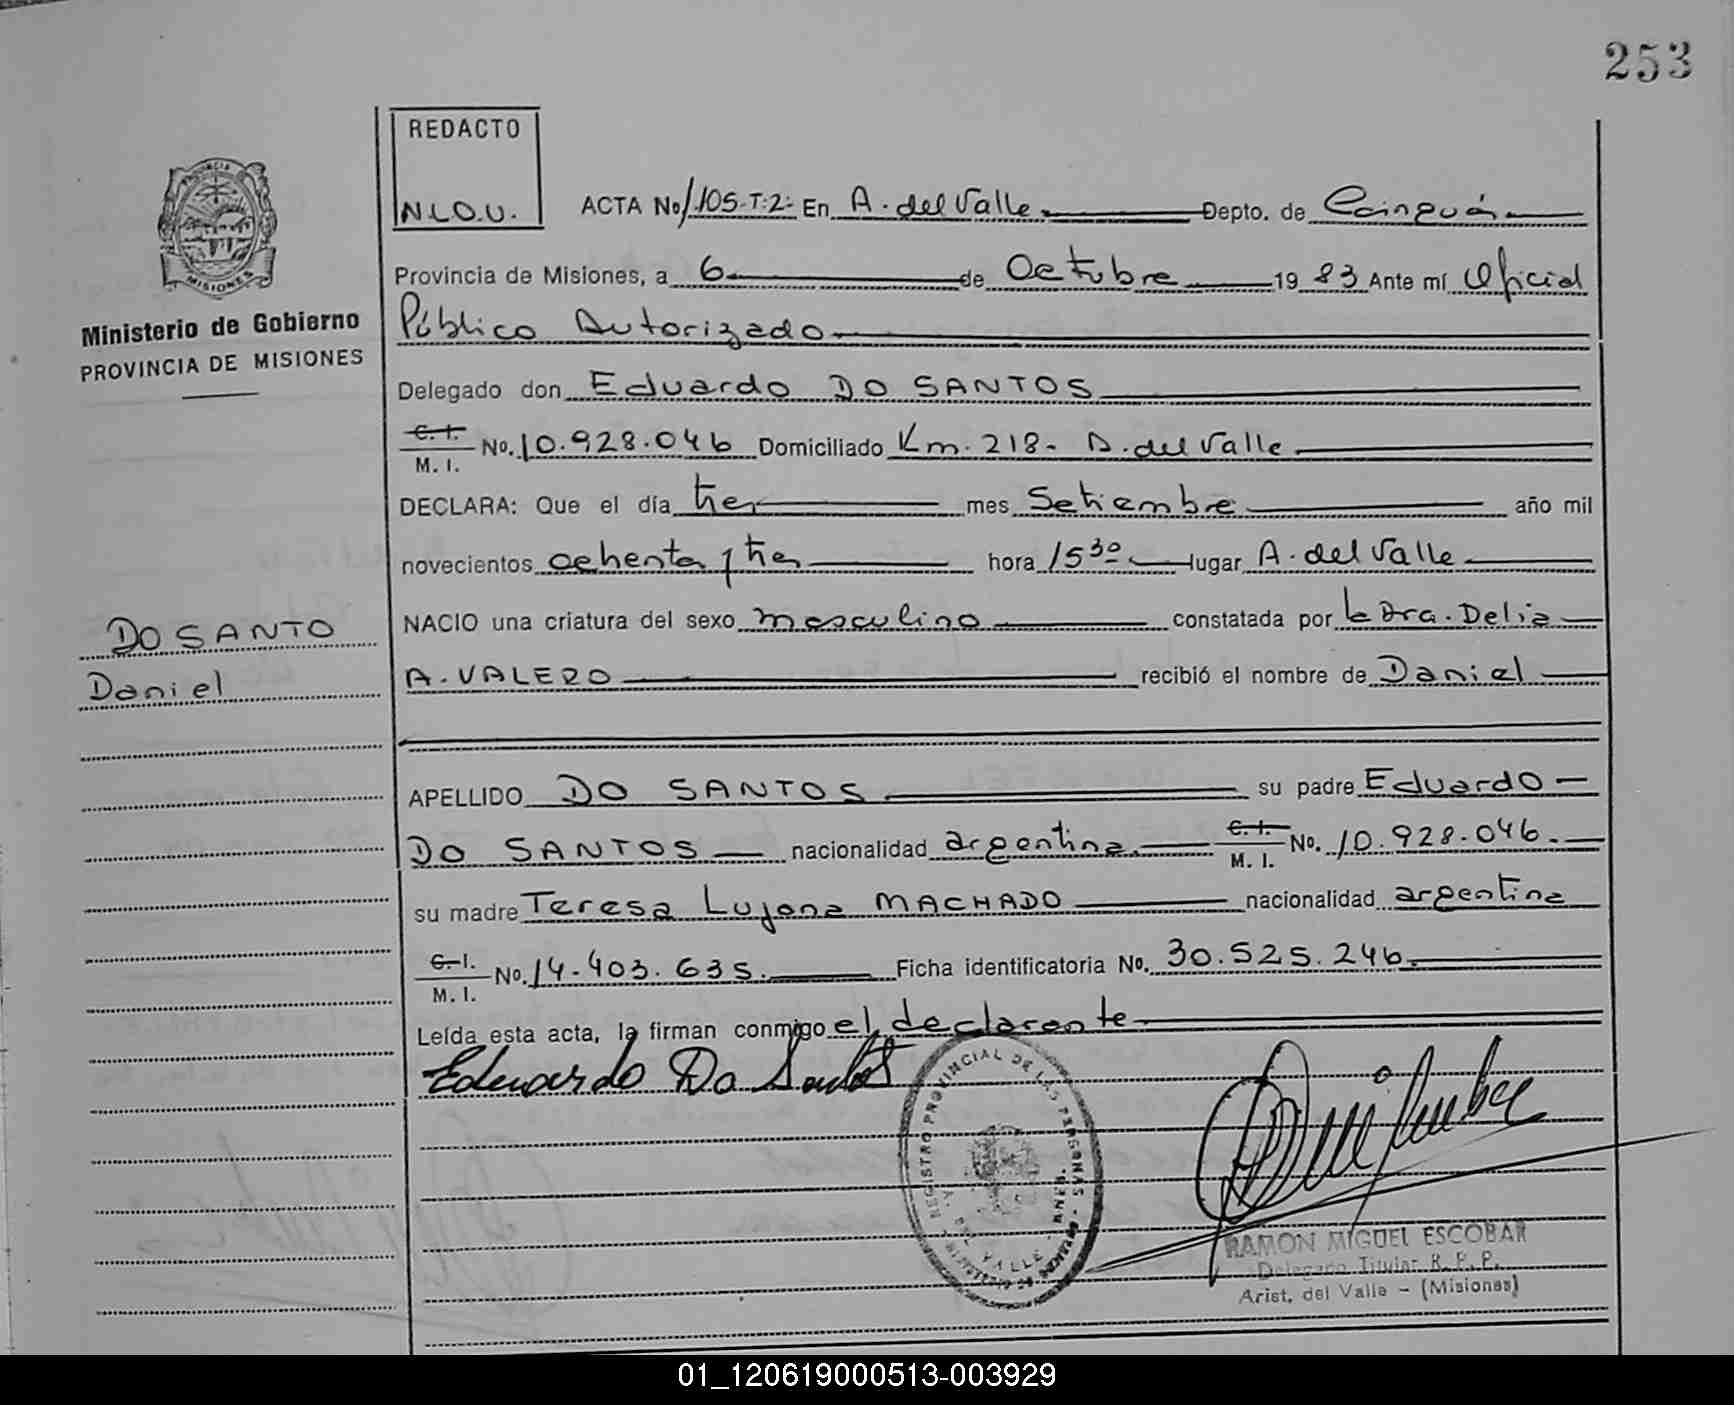 253
REDACTO
N.L.O.U.
ACTA No/.105.T:2- En A. del Valle Depto. de Cainguás
Provincia de Misiones, a 6 de Octubre 1983 Ante mí Oficial
Ministerio de Gobierno
PROVINCIA DE MISIONES
Público Autorizado
Delegado don Eduardo DO SANTOS
C. I.
M. I. No. 10.928.046 Domiciliado Km. 218- A. del Valle
DECLARA: Que el día tres mes Setiembre año mil
novecientos ochenta y tres hora 15 30 lugar A. del Valle
NACIO una criatura del sexo masculino constatada por la Dra. Delia
A. VALERO recibió el nombre de Daniel
DO SANTO
Daniel
APELLIDO DO SANTOS su padre Eduardo
DO SANTOS nacionalidad argentina. C. I.
M. I. No. 10.928.046.
su madre Teresa Lujana MACHADO nacionalidad argentina
C. I.
M. I. No. 14.403.635. Ficha identificatoria No. 30.525.246.
Leída esta acta, la firman conmigo el declarante
Eduardo Do Santos
REGISTRO PROVINCIAL DE LAS PERSONAS
RAMON MIGUEL ESCOBAR
Delegado Titular R. P. P.
Arist. del Valle - (Misiones)
MISIONES
01_120619000513-003929